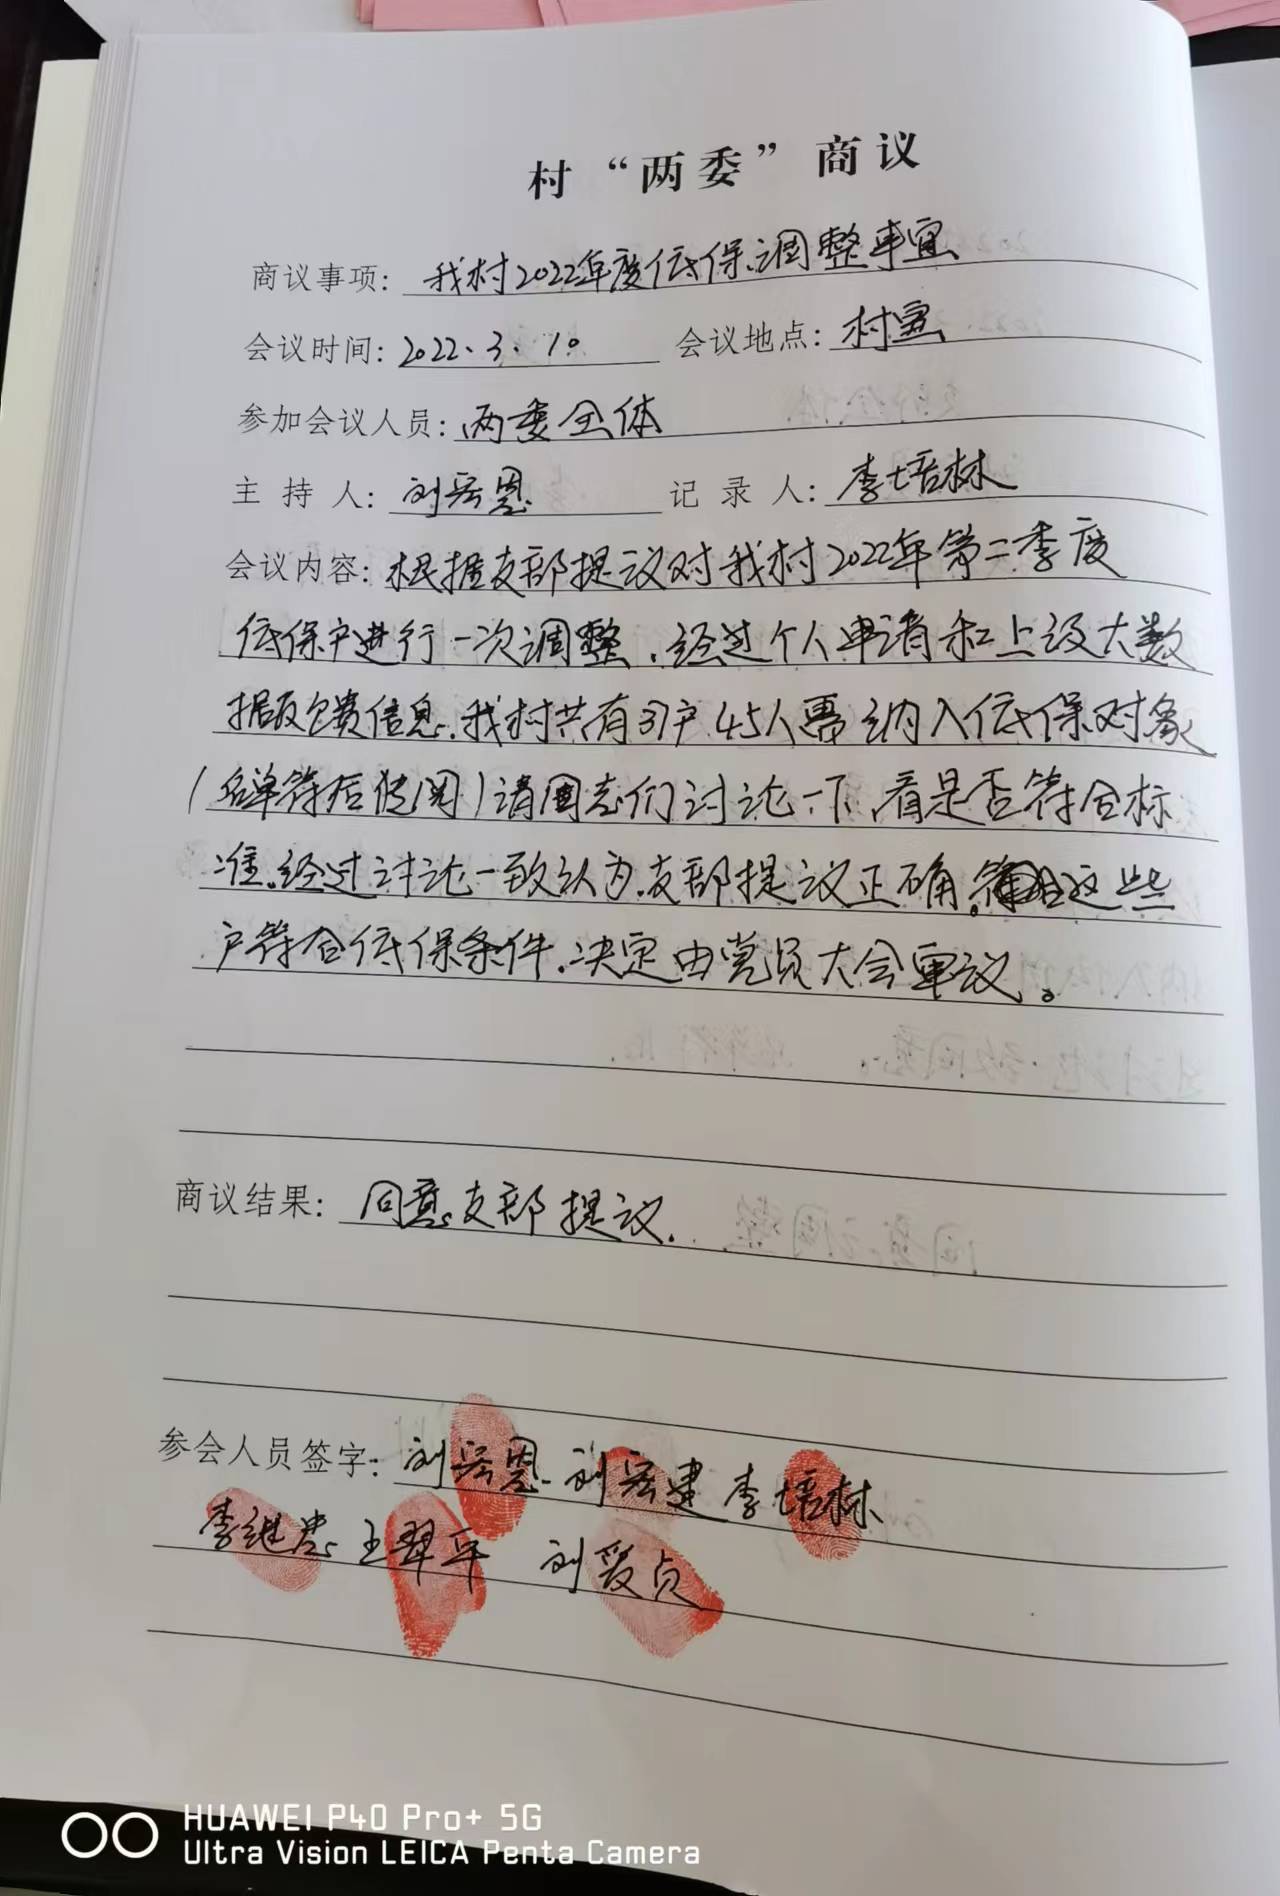 村“两委”商议
商议事项：我村2022年度低保调整事宜
会议时间：2022.3.10 会议地点：村室
参加会议人员：两委全体
主持人：刘宏恩 记录人：李培林
会议内容：根据支部提议对我村2022年第二季度
低保户进行一次调整.经过个人申请和上级大数
据反馈信息.我村共有31户45人需纳入低保对象
(名单符后传阅)请同志们讨论一下,看是否符合标
准.经过讨论一致认为.支部提议正确.这些
户符合低保条件.决定由党员大会审议。
商议结果：同意支部提议.
参会人员签字：刘宏恩 刘宏建 李培林
李继忠 王翠平 刘爱贞
HUAWEI P40 Pro+ 5G
Ultra Vision LEICA Penta Camera